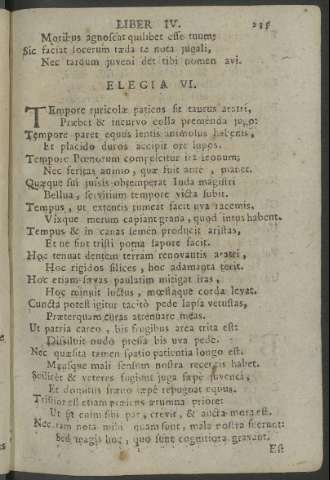 LIBER IV. 235
Moribus agnoscat quilibet esse tuum;
Sic faciat socerum tæda te nota jugali,
Nec tardum juveni det tibi nomen avi.
ELEGIA VI.
TEmpore ruricolæ patiens fit taurus aratri,
Præbet & incurvo colla premenda jugo:
Tempore paret equus lentis animosus habenis,
Et placido duros accipit ore lupos.
Tempore Pœnorum compescitur ira leonum;
Nec feritas animo, quæ fuit ante, manet.
Quæque sui jussis obtemperat Inda magistri
Bellua, servitium tempore victa subit.
Tempus, ut extentis tumeat facit uva racemis,
Vixque merum capiant grana, quod intus habent.
Tempus & in canas semen producit aristas,
Et ne sint tristi poma sapore facit.
Hoc tenuat dentem terram renovantis aratri,
Hoc rigidos silices, hoc adamanta terit.
Hoc etiam sævas paulatim mitigat iras,
Hoc minuit luctus, mœstaque corda levat.
Cuncta potest igitur tacito pede lapsa vetustas,
Præterquam curas attenuare meas.
Ut patria careo, bis frugibus area trita est:
Dissiluit nudo pressa bis uva pede.
Nec quæsita tamen spatio patientia longo est:
Mensque mali sensum nostra recentis habet.
Scilicet & veteres fugiunt juga sæpe juvenci,
Et domitus fræno sæpe repugnat equus.
Tristior est etiam præsens ærumna priore:
Ut sit enim sibi par, crevit, & aucta mora est.
Nec tam nota mihi quam sunt, mala nostra fuerunt:
Sed magis hoc, quo sunt cognitiora gravant.
Est